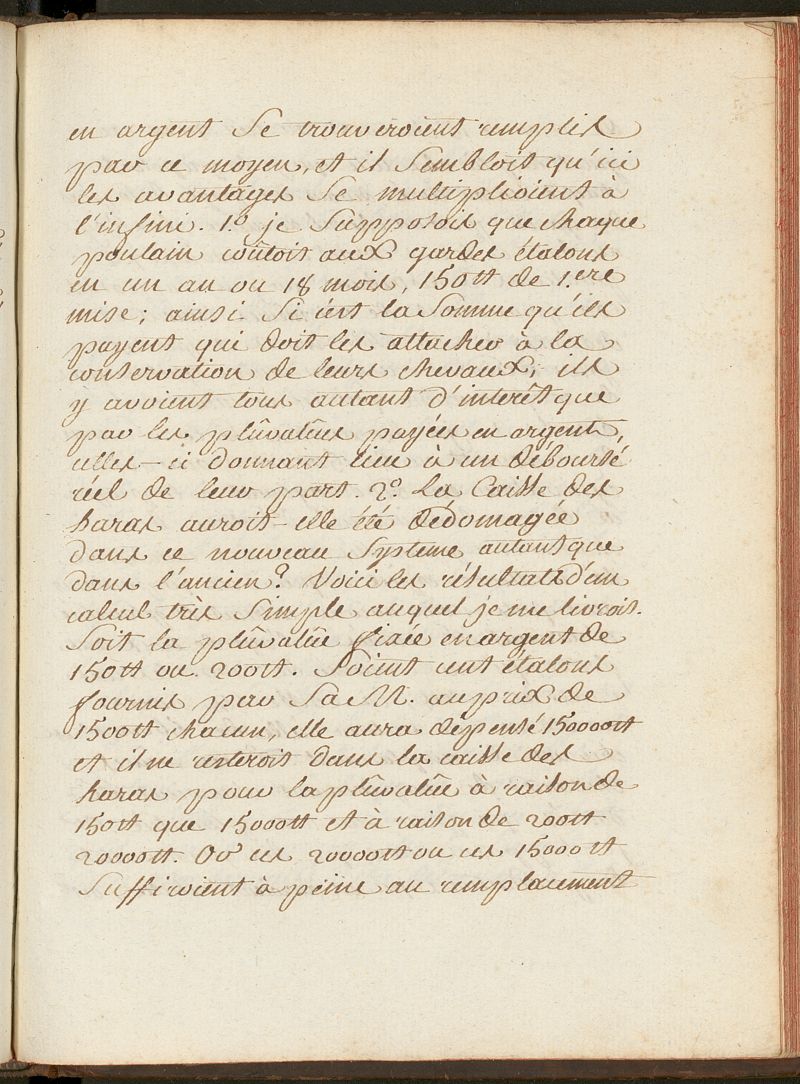 en argent Se trouveroient remplis
par ce moyen, et il Sembloit qu'ici
les avantages Se multiplioient à
l'infini. 1.º je Supposois que chaque
poulain coûtoit aux gardes étalons
en un an ou 18 mois, 150tt de 1.ere
mise; ainsi Si c'est la Somme qu'ils
payent qui doit les attacher à la
conservation de leurs chevaux, ils
y avoient tous autant d'interêt que
par les plûvalües payées en argent,
celles-ci donnant lieu à un débourté
réel de leur part. 2.º La Caisse des
haras auroit-elle été dédomagée
dans ce nouveau Systeme autant que
dans l'ancien? Voici les résultats d'un
calcul très Simple auquel je me livrois.
Soit la plûvalüe fixée en argent de
150tt ou 200tt. Soient cent étalons
fournis par Sa M. au prix de
1500tt chacun, elle aura dépensé 150000tt
et il ne resteroit dans la caisse des
haras pour la plûvalüe à raison de
150tt que 15000tt et à raison de 200tt
20000tt. Or ces 20000tt ou ces 15000tt
Suffiroient à peine au remplacement